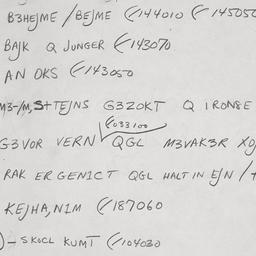 B3HEJME / BEJME (/144010 (/ 145050
BAJK Q JUNGER (/143070
AN OKS (/143050
M3-/M, S+TEJNS G3ZOKT Q IRONSE
(/033100
G3VOR VERN QGL M3VAK3R XO
RAK ERGENICT QGL HALT IN EJN /
KEJHA, NIM (/187060
)- SKOCL KUMT (/104030